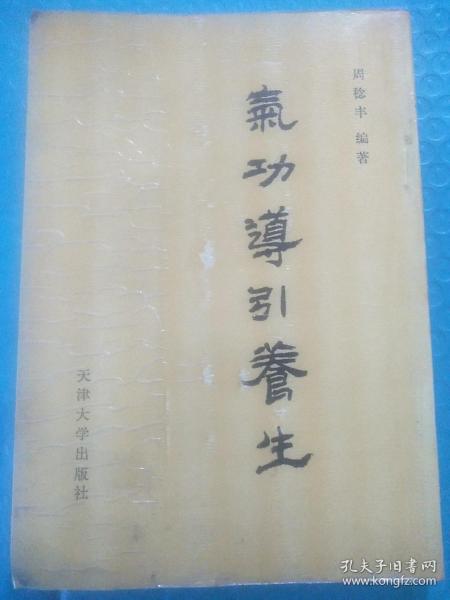 周稔丰 编著
氣功導引養生
天津大学出版社
孔夫子旧书网
www.kongfz.com